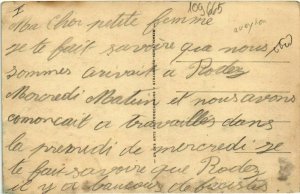 F
109665
aveyron
Ma cher petite femme
je te fait savoire que nous
sommes arivait a Rodez
Mercredi Matin et nous avons
comoncait a travailles dans
la premidi de mercredi je
te fait savoire que Rodez
il y a baucous de